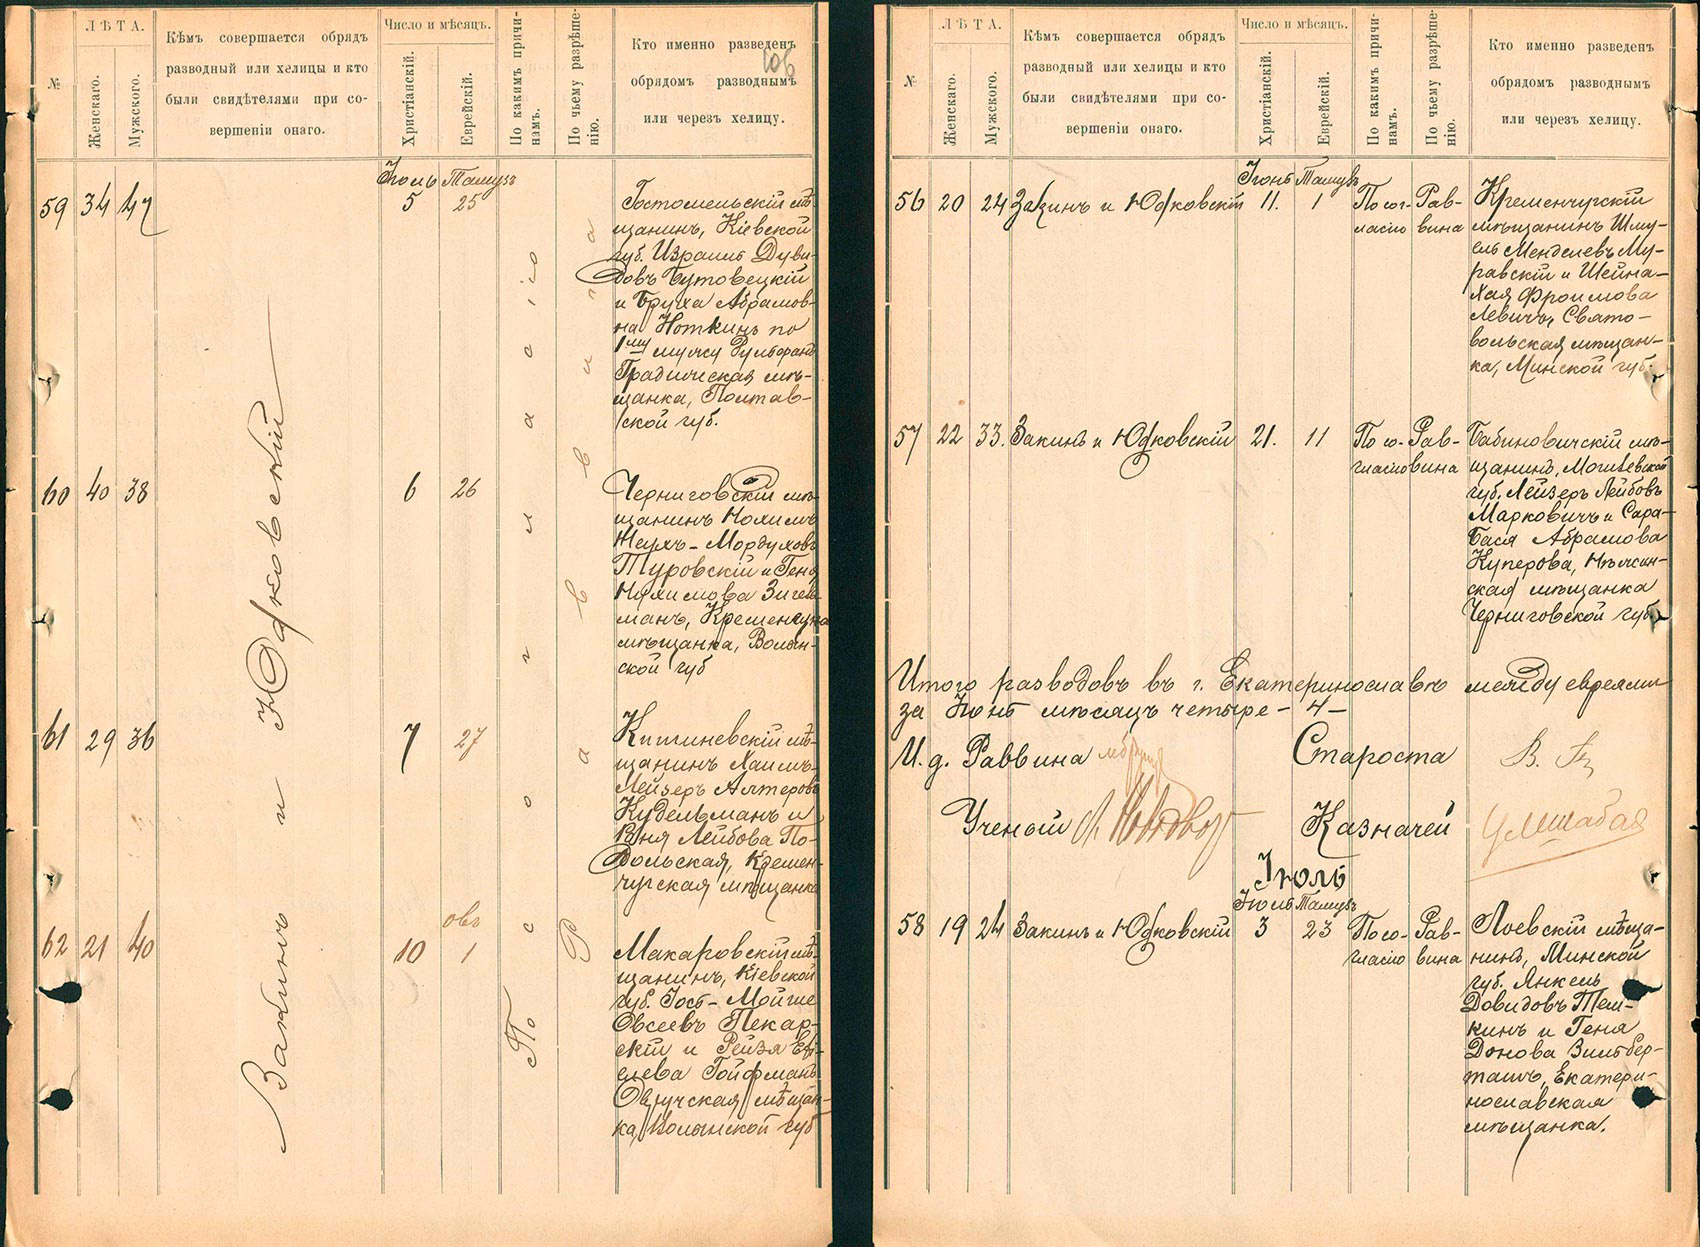 №
ЛѢТА.
Женскаго.
Мужского.
Кѣмъ совершается обрядъ
разводный или хелицы и кто
были свидѣтелями при со-
вершеніи онаго.
Число и мѣсяцъ.
Христіанскій.
Еврейскій.
По какимъ причи-
намъ.
По чьему разрѣше-
нію.
Кто именно разведенъ
обрядомъ разводнымъ
или черезъ хелицу.
106
Закинъ и Юдковскій
По согласію
Раввина
Іюль Тамузъ
59 34 47 5 25
Гостомельскій мѣ-
щанинъ, Кіевской
губ. Израиль Дуви-
довъ Бутовецкій
и Бруха Абрамов-
на Ноткинъ по
1му мужу
Градижская мѣ-
щанка, Полтав-
ской губ.
60 40 38 6 26
Черниговскій мѣ-
щанинъ Нохимъ
Мордуховъ
Туровскій и Геня
Нохимова Зигель-
манъ,
мѣщанка, Волын-
ской губ
61 29 36 7 27
Кишиневскій мѣ-
щанинъ Хаимъ-
Лейзеръ Алтеровъ
Кудельманъ и
Лейбова По-
дольская, Кремен-
чугская мѣщанка
овъ
62 21 40 10 1
Макаровскій мѣ-
щанинъ, Кіевской
губ. Іось-Мойше
Овсеевъ Пекар-
скій и Рейзя
Гойфманъ
Овручская мѣщан-
ка, Волынской губ
№
ЛѢТА.
Женскаго.
Мужского.
Кѣмъ совершается обрядъ
разводный или хелицы и кто
были свидѣтелями при со-
вершеніи онаго.
Число и мѣсяцъ.
Христіанскій.
Еврейскій.
По какимъ причи-
намъ.
По чьему разрѣше-
нію.
Кто именно разведенъ
обрядомъ разводнымъ
или черезъ хелицу.
Іюнь Тамузъ
56 20 24 Закинъ и Юдковскій 11. 1 По сог- Рав-
ласію вина
Кременчугскій
мѣщанинъ Шму-
ель Менделевъ Му-
равскій и Шейна-
Хая Фроимова
Левичъ, Свято-
вольская мѣщан-
ка, Минской губ.
57 22 33. Закинъ и Юдковскій 21. 11 По со- Рав-
гласію вина
Бабиновичскій мѣ-
щанинъ, Могилевской
губ. Лейзеръ Лейбовъ
Марковичъ и Сара-
Бася Абрамова
Куперова, Нѣжин-
ская мѣщанка
Черниговской губ.
Итого разводовъ въ г. Екатеринославѣ между евреями
за Іюнь мѣсяцъ четыре -4-
И. д. Раввина
Староста
Ученый
Казначей
Іюль
Іюль Тамузъ
58 19 24 Закинъ и Юдковскій 3 23 По со- Рав-
гласію вина
Лоевскій мѣща-
нинъ, Минской
губ. Янкель
Довидовъ Теш-
кинъ и Геня
Донова Зильбер-
манъ, Екатери-
нославская
мѣщанка.